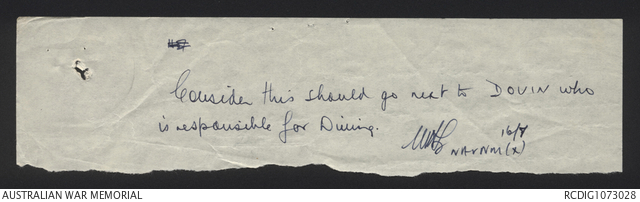 Consider this should go next to DOVIN who
is responsible for Diving.
16/8
NAVNM(X)
AUSTRALIAN WAR MEMORIAL
RCDIG1073028